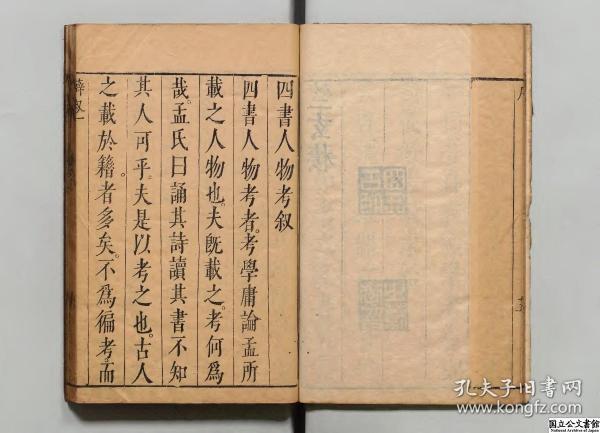 四書人物考叙
四書人物考者。考學庸論孟所
載之人物也。夫既載之。考何爲
哉。孟氏曰誦其詩讀其書不知
其人可乎。夫是以考之也。古人
之載於籍者多矣。不爲徧考。而
薛叙
一
孔夫子旧書网
www.kongfz.com
国立公文書館
National Archives of Japan